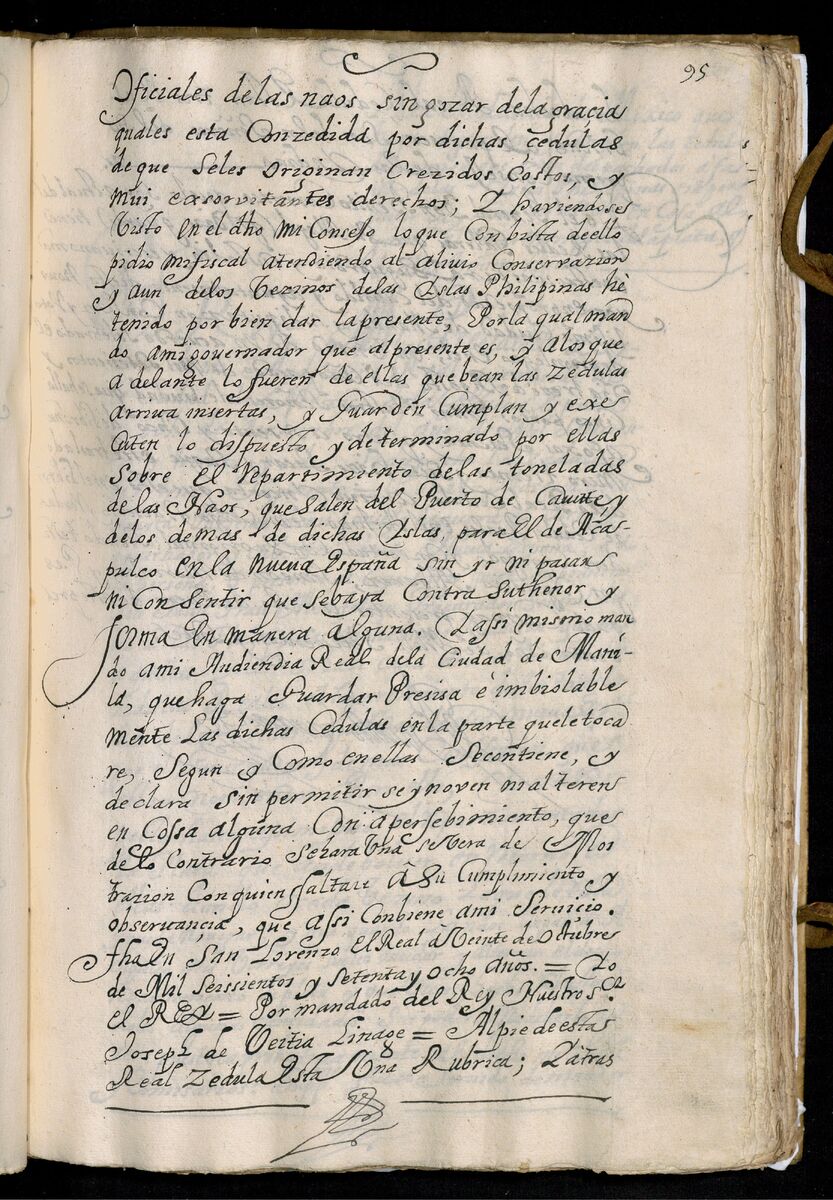 95
Oficiales de las naos sin gozar de la gracia
quales esta Conzedida por dichas çedulas
de que seles originan Crezidos Costos, y
mui exsorvitantes derechos; Y haviendoses
Visto en el dho mi Consejo lo que Con bista de ello
pidio mi fiscal atendiendo al alivio Conservazion
y aun delos Vezinos delas Yslas Philipinas hè
tenido por bien dar la presente, Por la qual man
do ami governador que al presente es, y alos que
a delante lo fueren de ellas que bean las Zedulas
arriva insertas, y Guarden Cumplan y exe
cuten lo dispuesto y determinado por ellas
sobre el repartimiento delas toneladas
de las Naos, que salen del Puerto de Cavitte, y
delos demas de dichas Yslas para El de Aca-
pulco en la nueva España sin yr ni pasar
ni Con sentir que se baya Contra su thenor y
forma En manera alguna. Y assi mismo man
do ami Audiendia Real dela Ciudad de Mani-
la, que haga Guardar Presisa è imbiolable
mente Las dichas Cedulas en la parte que le toca
re, Segun y Como en ellas se contiene, y
declara sin permitir se ynoven ni al teren
en Cossa alguna Con apersebimiento, que
delo Contrario se hara Una severa de Mos
trazion Con quien ffaltare à su Cumplimiento y
observançia, que assi Conbiene ami Serviçio.
fha En San Lorenzo El Real à Veinte de Octubre
de Mil seissientos y setenta y ocho años. = Yo
el REY = Por mandado del Rey Nuestro s.or
Joseph de Veitia Linage = Al pie de esta
Real Zedula Esta Una Rubrica; Y atras